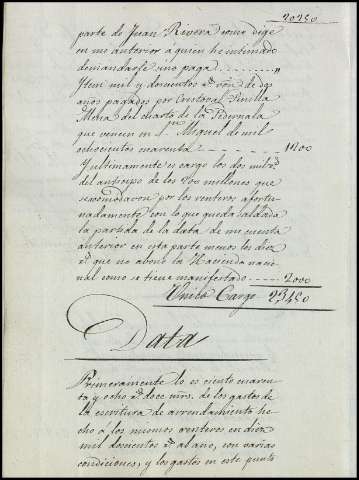 20250
parte de Juan Rivera como dige
en mi anterior a quien he intimado
demandarle sino paga
Item mil y doscientos rs. von. de dos
años pagados por Cristoval Pinilla
del cuarto de la Pedernala
que vencen en Sn. Miguel de mil
ochocientos cuarenta 1200
Y ultimamente es cargo los dos mil rs.
del anticipo de los 200 millones que
se acomodaron por los renteros afortu-
nadamente con lo que queda saldada
la partida de la data de mi cuenta
anterior en esta parte menos los diez
rs. que no abonó la Hacienda nacio-
nal como se tiene manifestado 2000
Unico Cargo 23450
Data
Primeramente lo es ciento cuaren-
ta y ocho rs. doce mrs. de los gastos de
la escritura de arrendamiento he-
cho á los mismos renteros en diez
mil doscientos rs. al año, con varias
condiciones, y los gastos en este punto